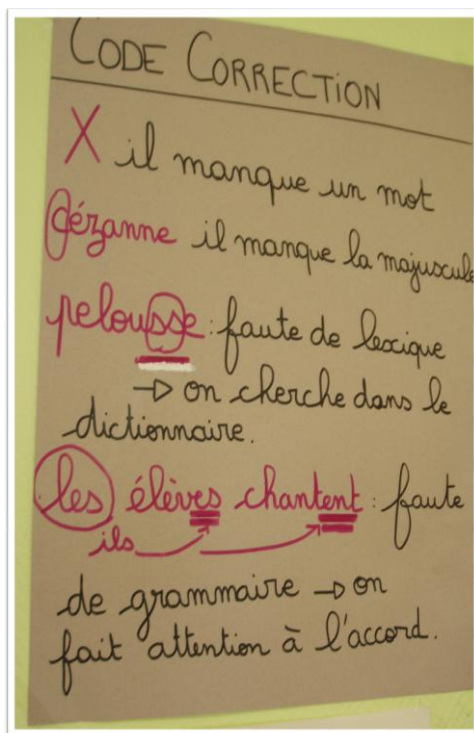 CODE CORRECTION
X il manque un mot
cézanne il manque la majuscule
pelousse : faute de lexique
→ on cherche dans le
dictionnaire.
les élèves chantent : faute
ils
de grammaire → on
fait attention à l'accord.